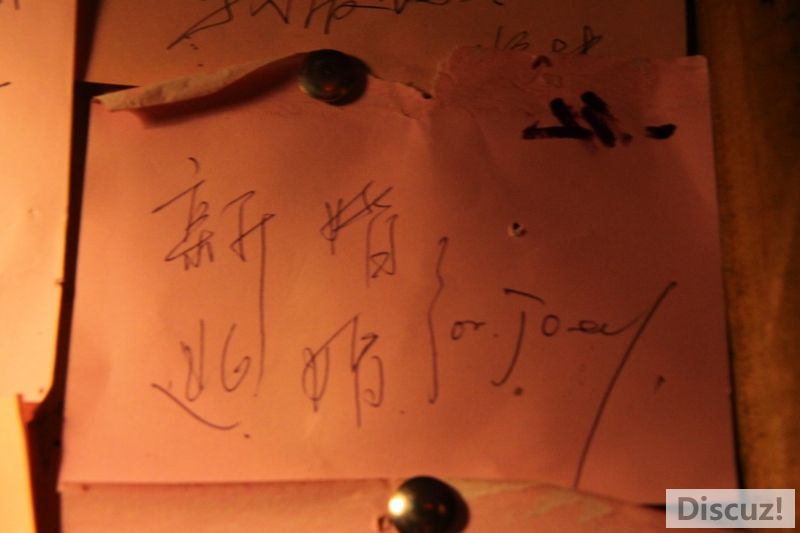 新婚
逃婚
or. Joey
Discuz!